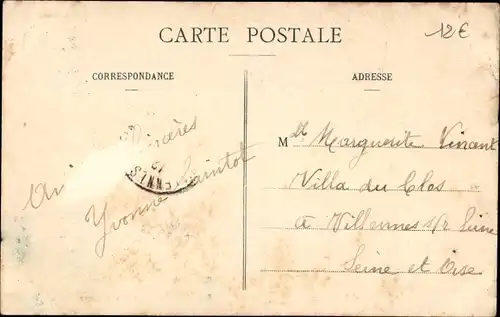 CARTE POSTALE
12€
CORRESPONDANCE
ADRESSE
sincères
Yvonne Saintot
Mlle Marguerite Vincent
Villa du Clos
à Villennes s/r Seine
Seine et Oise